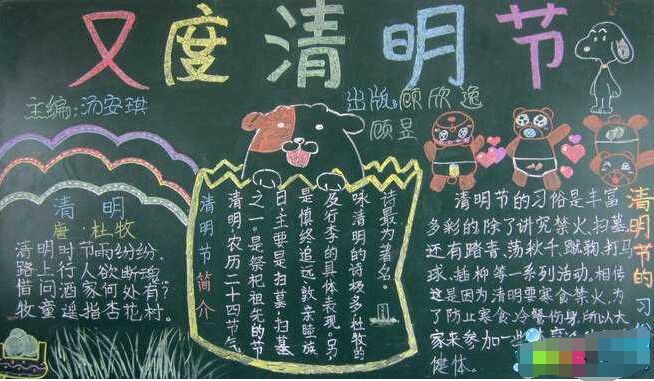 又度清明节
主编:汤安琪
出版:顾欣逸
顾昱
清明
唐·杜牧
清明时节雨纷纷.
路上行人欲断魂.
借问酒家何处有?
牧童遥指杏花村.
清明节简介
清明,农历二十四节气
之一。是祭祀祖先的节
日,主要是扫墓,扫墓
是慎终追远,敦亲睦族
及行孝的具体表现。另
咏清明的诗极多,杜牧的
诗最为著名.
清明节的习俗是丰富
多彩的,除了讲究禁火、扫墓,
还有踏青、荡秋千、蹴鞠、打马
球、插柳等一系列活动。相传
这是因为清明要寒食禁火,为
了防止寒食、冷餐伤身,所以大
家来参加一些
健体.
清明节的习